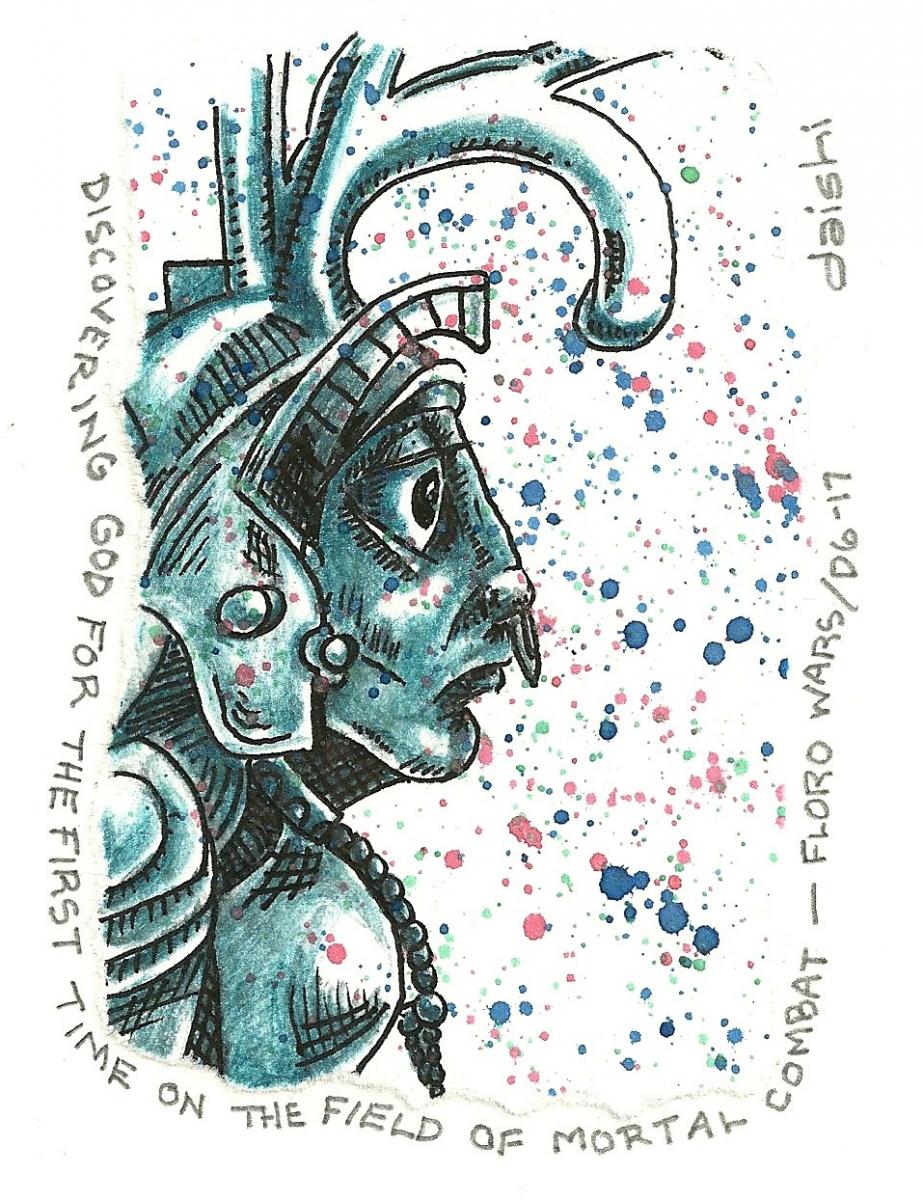 DISCOVERING GOD FOR THE FIRST TIME ON THE FIELD OF MORTAL COMBAT — FLORO WARS/D6-17
daishi